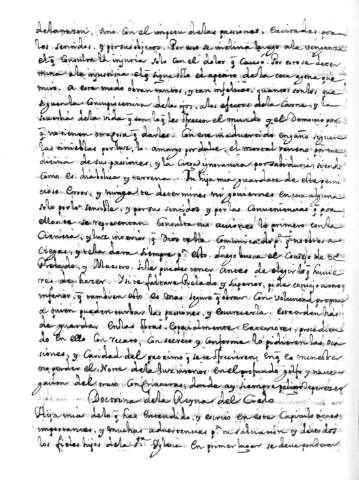 de la razon, sino con el impetu de las passiones, excitadas por
los sentidos, y por sus objetos. Por eso se inclina luego a la venganza
el q̃ considera la injuria solo con el dolor q̃ causó. Por eso se deter
mina a la injusticia el q̃ sigue solo el apetito de la cosa agena que
miro. a este modo obran tantos, y tan infelices, quantos son los que
siguen la concupiscencia de los ojos, los afectos de la carne, y la
soberbia de la vida q̃ son los q̃ les ofrecen el mundo y el Demonio por
q̃ no tienen otra cosa q̃ darles. Con este inadvertido engaño siguen
las tinieblas por luz, lo amargo por dulce, el mortal veneno por me
dicina de sus pasiones, y la ciega ignorancia por sabiduria, siendo
como es diabolica y terrena. Tu hija mia guardate de este perni
cioso error, y nunca te determines ni govierne en cosa alguna
solo por lo sensible, y por sus sentidos y por las conveniencias q̃ por
ellos se te representan. Consulta tus acciones lo primero con la
ciencia, y luz interior q̃ Dios te ha comunicado p.ª q̃ no obres a
ciegas, y te la dara siempre p.ª ello. luego busca el consejo de tu
Prelado, y Maestro, si le puedes tener antes de elegir lo q̃ hubie
res de hacer. Y si te faltare Prelado y superior, pide consejo a otro
inferior, q̃ tambien esto es mas seguro q̃ obrar con voluntad propia
a quien pueden turbar las pasiones, y escurecerla. Este orden has
de guardar en las obras, especialmente exteriores, procedien
do en ello con recato, con secreto, y conforme lo pidieren las oca
siones, y caridad del proximo q̃ se te ofrecieren, en q̃ es menester
no perder el Norte de la luz interior en el profundo golfo y nave
gacion del trato con criaturas, donde ay siempre peligro de perecer.
Doctrina de la Reyna del Cielo
Hija mia de lo q̃ has entendido, y escrito en este capitulo tienes
importantes, y muchas advertencias p.ª tu salvacion y de todos
los fieles hijos de la S.ª Yglesia. En primer lugar se deve ponderar